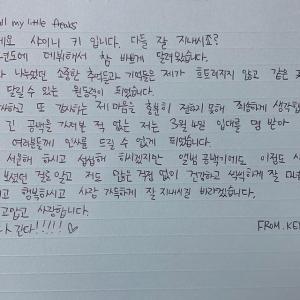 all my little freaks
샤이니 키 입니다. 다들 잘 지내시죠?
년도에 데뷔해서 참 바쁘게 달려왔습니다.
나누었던 소중한 추억들과 기억들은 제가 흐트러지지 않고 같은
달릴 수 있는 원동력이 되었습니다.
하고 또 감사하는 제 마음을 충분히 전하지 못해 죄송하게 생각합
긴 공백을 가져본 적 없는 저는 3월 4일 입대를 명 받아
여러분들께 인사를 드릴 수 없게 되었습니다.
서운해 하시고 섭섭해 하시겠지만
저도 아무 걱정 없이 건강하고 씩씩하게 잘
고 행복하시고 사랑 가득하게 잘 지내시길 바라겠습니다.
고맙고 사랑합니다.
간다!!!!! ♡
FROM. KEY